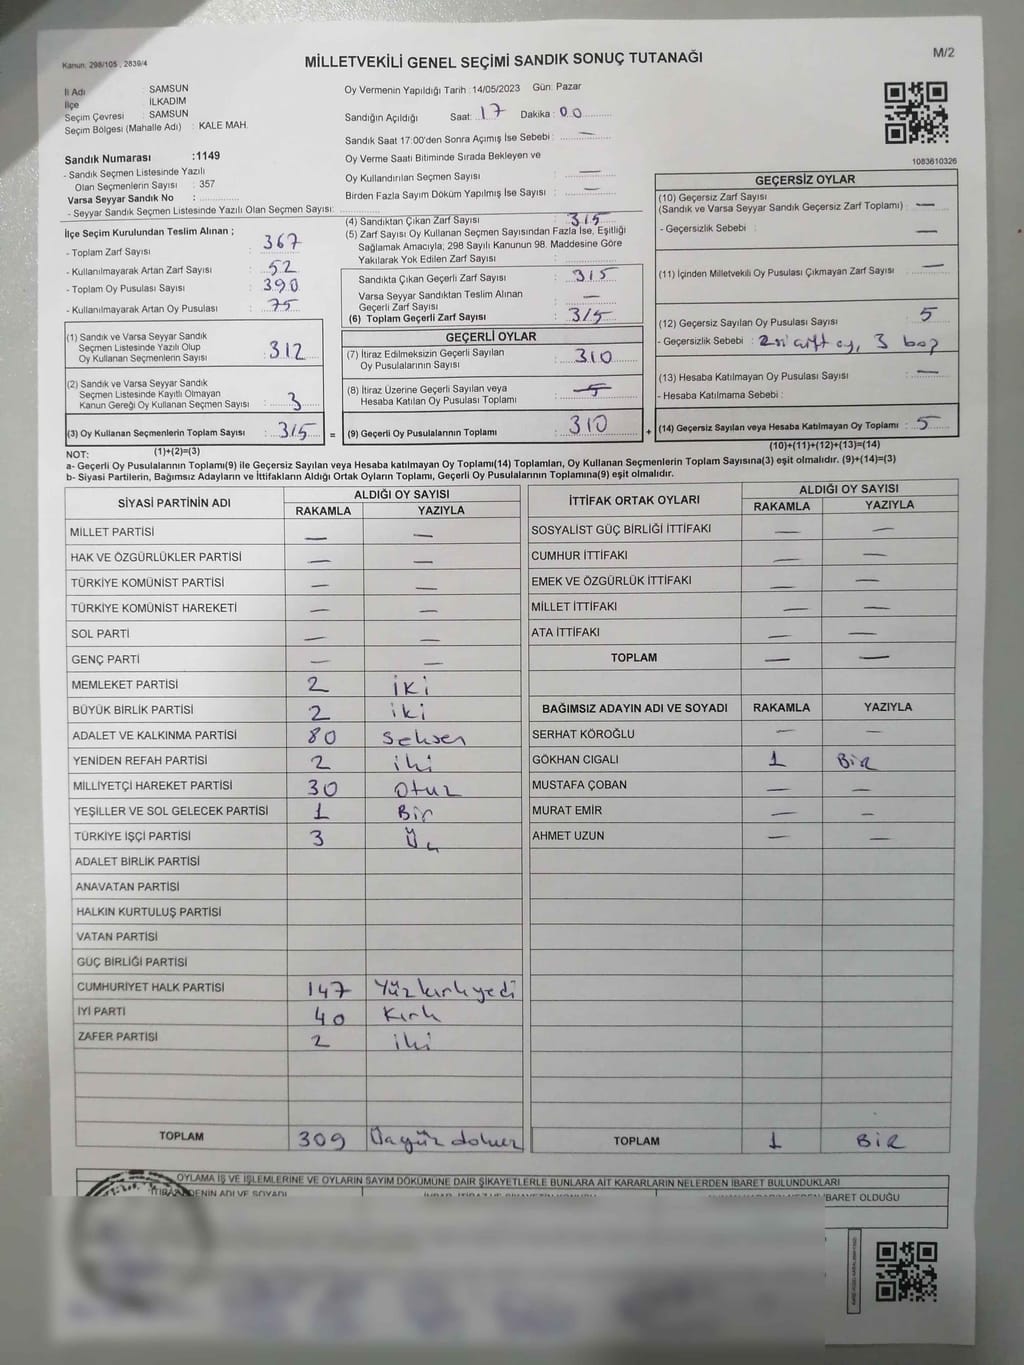 Kanun. 298/105 , 2839/4
MİLLETVEKİLİ GENEL SEÇİMİ SANDIK SONUÇ TUTANAĞI
M/2
İl Adı : SAMSUN
İlçe : İLKADIM
Seçim Çevresi : SAMSUN
Seçim Bölgesi (Mahalle Adı) : KALE MAH.
Sandık Numarası :1149
- Sandık Seçmen Listesinde Yazılı
Olan Seçmenlerin Sayısı : 357
Varsa Seyyar Sandık No :
- Seyyar Sandık Seçmen Listesinde Yazılı Olan Seçmen Sayısı:
İlçe Seçim Kurulundan Teslim Alınan ;
- Toplam Zarf Sayısı : 367
- Kullanılmayarak Artan Zarf Sayısı : 52
- Toplam Oy Pusulası Sayısı : 390
- Kullanılmayarak Artan Oy Pusulası : 75
(1) Sandık ve Varsa Seyyar Sandık
Seçmen Listesinde Yazılı Olup
Oy Kullanan Seçmenlerin Sayısı : 312
(2) Sandık ve Varsa Seyyar Sandık
Seçmen Listesinde Kayıtlı Olmayan
Kanun Gereği Oy Kullanan Seçmen Sayısı : 3
(3) Oy Kullanan Seçmenlerin Toplam Sayısı : 315 =
(1)+(2)=(3)
Oy Vermenin Yapıldığı Tarih : 14/05/2023 Gün: Pazar
Sandığın Açıldığı Saat: 17 Dakika: 00
Sandık Saat 17:00'den Sonra Açımış İse Sebebi : —
Oy Verme Saati Bitiminde Sırada Bekleyen ve
Oy Kullandırılan Seçmen Sayısı : —
Birden Fazla Sayım Döküm Yapılmış İse Sayısı : —
(4) Sandıktan Çıkan Zarf Sayısı : 315
(5) Zarf Sayısı Oy Kullanan Seçmen Sayısından Fazla İse, Eşitliği
Sağlamak Amacıyla; 298 Sayılı Kanunun 98. Maddesine Göre
Yakılarak Yok Edilen Zarf Sayısı :
Sandıkta Çıkan Geçerli Zarf Sayısı : 315
Varsa Seyyar Sandıktan Teslim Alınan
Geçerli Zarf Sayısı : —
(6) Toplam Geçerli Zarf Sayısı : 315
GEÇERLİ OYLAR
(7) İtiraz Edilmeksizin Geçerli Sayılan
Oy Pusulalarının Sayısı : 310
(8) İtiraz Üzerine Geçerli Sayılan veya
Hesaba Katılan Oy Pusulası Toplamı : 5
(9) Geçerli Oy Pusulalarının Toplamı : 310 +
1083610326
GEÇERSİZ OYLAR
(10) Geçersiz Zarf Sayısı
(Sandık ve Varsa Seyyar Sandık Geçersiz Zarf Toplamı) : —
- Geçersizlik Sebebi : —
(11) İçinden Milletvekili Oy Pusulası Çıkmayan Zarf Sayısı : —
(12) Geçersiz Sayılan Oy Pusulası Sayısı : 5
- Geçersizlik Sebebi : 2si çift oy, 3 boş
(13) Hesaba Katılmayan Oy Pusulası Sayısı : —
- Hesaba Katılmama Sebebi :
(14) Geçersiz Sayılan veya Hesaba Katılmayan Oy Toplamı : 5
(10)+(11)+(12)+(13)=(14)
NOT:
a- Geçerli Oy Pusulalarının Toplamı(9) ile Geçersiz Sayılan veya Hesaba katılmayan Oy Toplamı(14) Toplamları, Oy Kullanan Seçmenlerin Toplam Sayısına(3) eşit olmalıdır. (9)+(14)=(3)
b- Siyasi Partilerin, Bağımsız Adayların ve İttifakların Aldığı Ortak Oyların Toplamı, Geçerli Oy Pusulalarının Toplamına(9) eşit olmalıdır.
SİYASİ PARTİNİN ADI ALDIĞI OY SAYISI
RAKAMLA YAZIYLA
MİLLET PARTİSİ — —
HAK VE ÖZGÜRLÜKLER PARTİSİ — —
TÜRKİYE KOMÜNİST PARTİSİ — —
TÜRKİYE KOMÜNİST HAREKETİ — —
SOL PARTİ — —
GENÇ PARTİ — —
MEMLEKET PARTİSİ 2 iki
BÜYÜK BİRLİK PARTİSİ 2 iki
ADALET VE KALKINMA PARTİSİ 80 Seksen
YENİDEN REFAH PARTİSİ 2 iki
MİLLİYETÇİ HAREKET PARTİSİ 30 Otuz
YEŞİLLER VE SOL GELECEK PARTİSİ 1 Bir
TÜRKİYE İŞÇİ PARTİSİ 3 Üç
ADALET BİRLİK PARTİSİ
ANAVATAN PARTİSİ
HALKIN KURTULUŞ PARTİSİ
VATAN PARTİSİ
GÜÇ BİRLİĞİ PARTİSİ
CUMHURİYET HALK PARTİSİ 147 Yüzkırkyedi
İYİ PARTİ 40 Kırk
ZAFER PARTİSİ 2 iki
TOPLAM 309 Üçyüz dokuz
İTTİFAK ORTAK OYLARI ALDIĞI OY SAYISI
RAKAMLA YAZIYLA
SOSYALİST GÜÇ BİRLİĞİ İTTİFAKI — —
CUMHUR İTTİFAKI — —
EMEK VE ÖZGÜRLÜK İTTİFAKI — —
MİLLET İTTİFAKI — —
ATA İTTİFAKI — —
TOPLAM — —
BAĞIMSIZ ADAYIN ADI VE SOYADI RAKAMLA YAZIYLA
SERHAT KÖROĞLU — —
GÖKHAN CIGALI 1 BİR
MUSTAFA ÇOBAN — —
MURAT EMİR — —
AHMET UZUN — —
TOPLAM 1 BİR
OYLAMA İŞ VE İŞLEMLERİNE VE OYLARIN SAYIM DÖKÜMÜNE DAİR ŞİKAYETLERLE BUNLARA AİT KARARLARIN NELERDEN İBARET BULUNDUKLARI
İBARET OLDUĞU